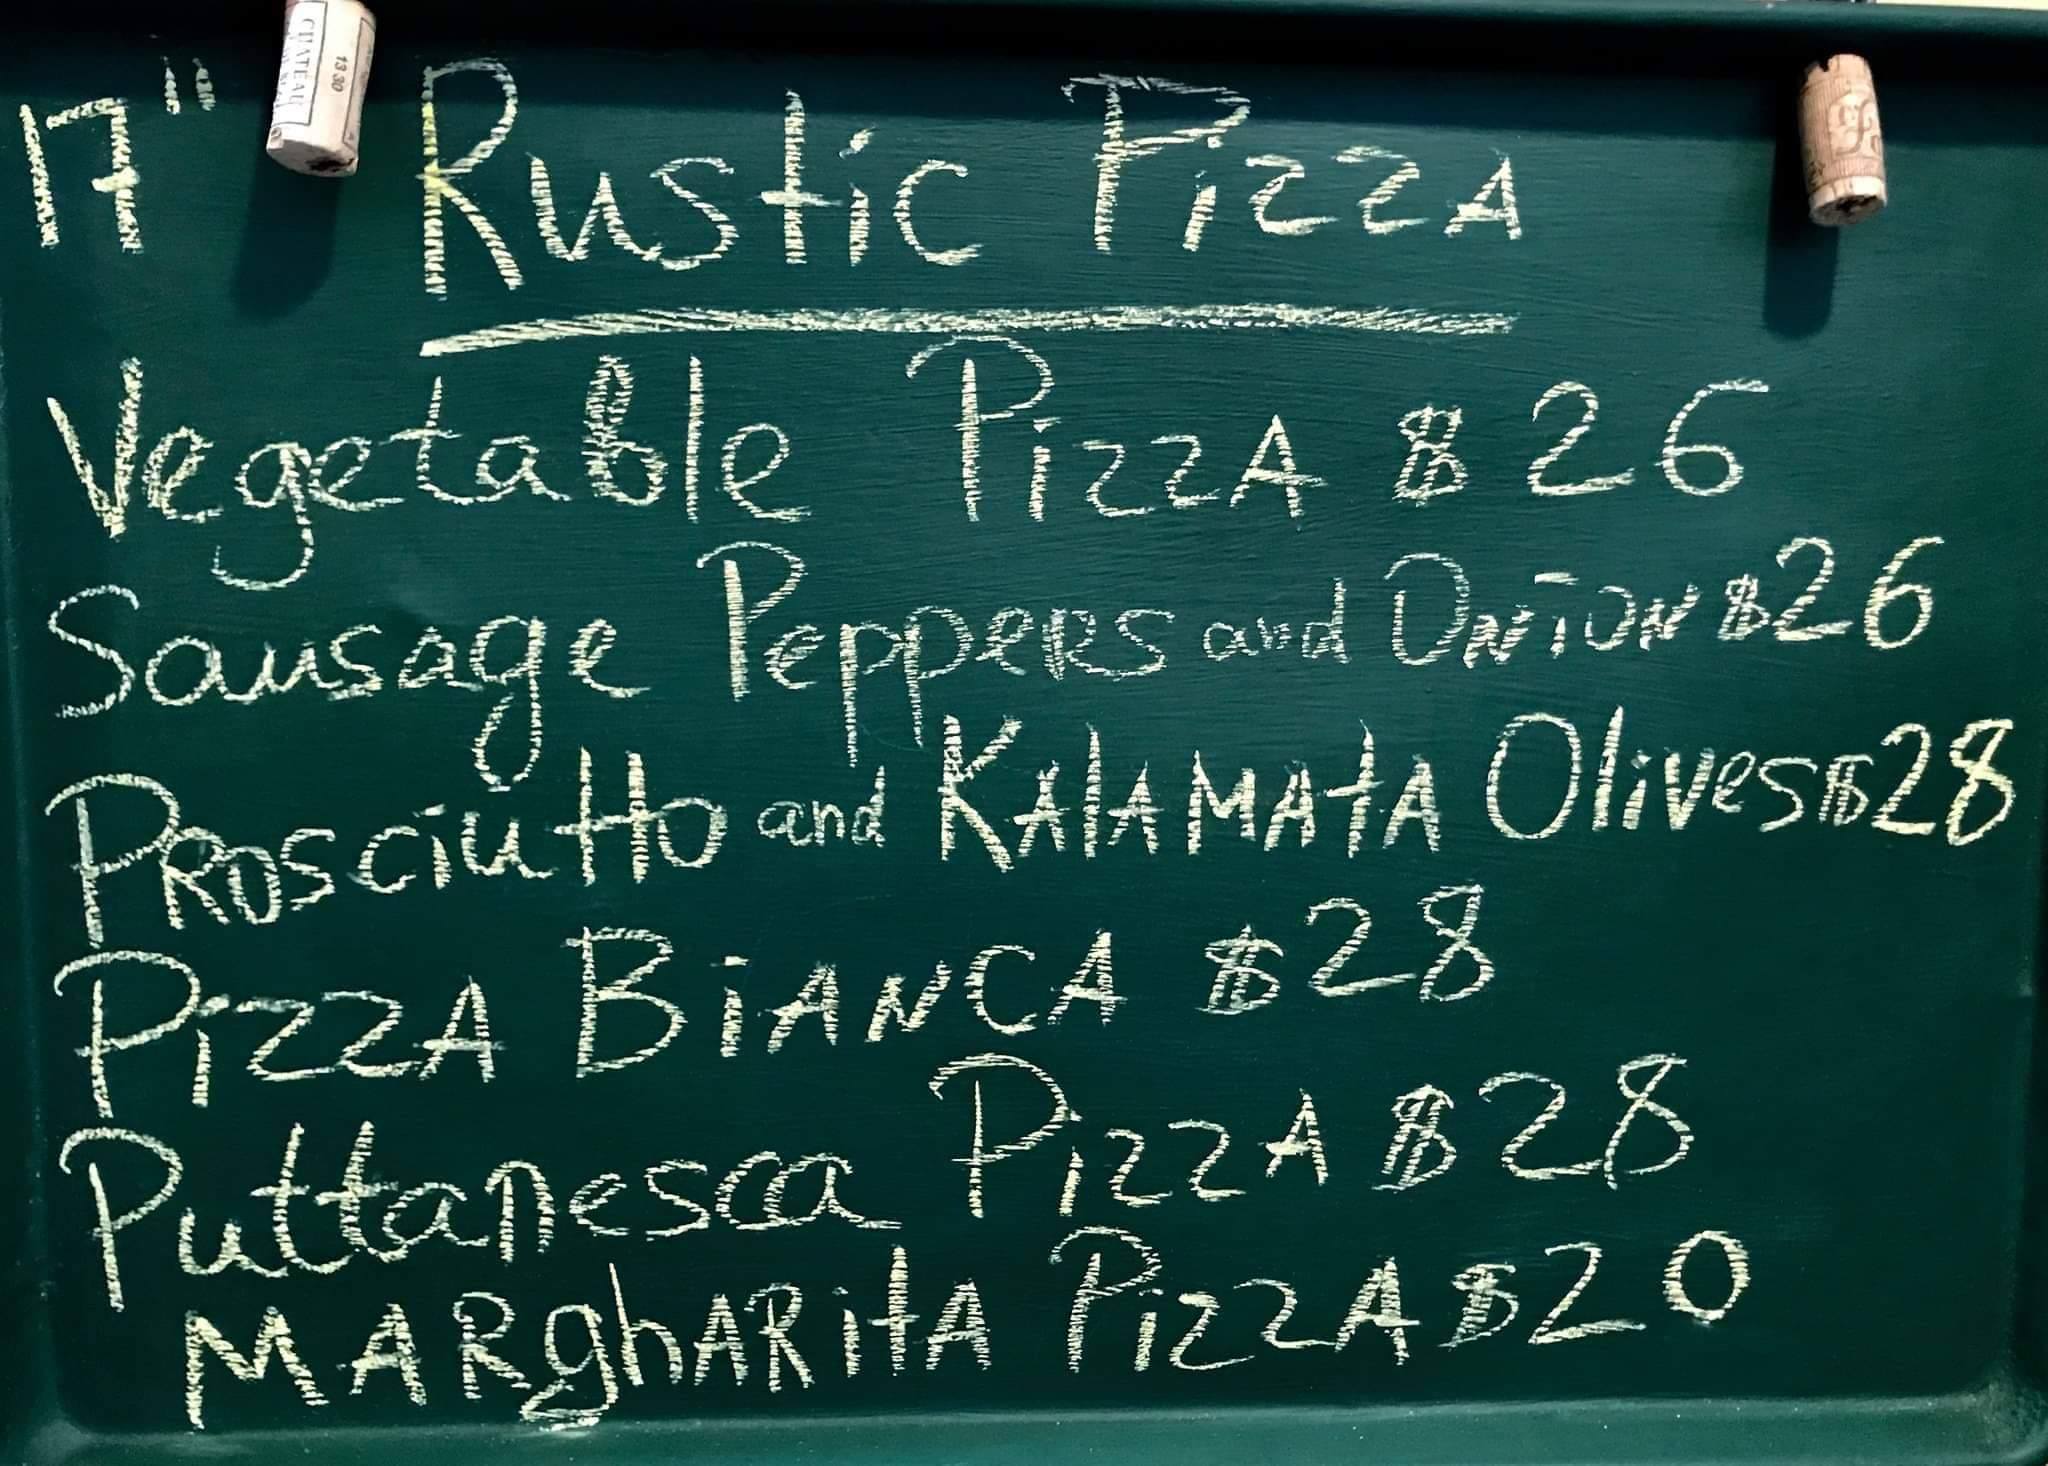 17" Rustic PizzA
Vegetable PizzA $26
Sausage Peppers and Onion $26
Prosciutto and KAlAMAtA Olives $28
PizzA BiANCA $28
Puttanesca PizzA $28
MARghARitA PizzA $20
CHATEAU
1330